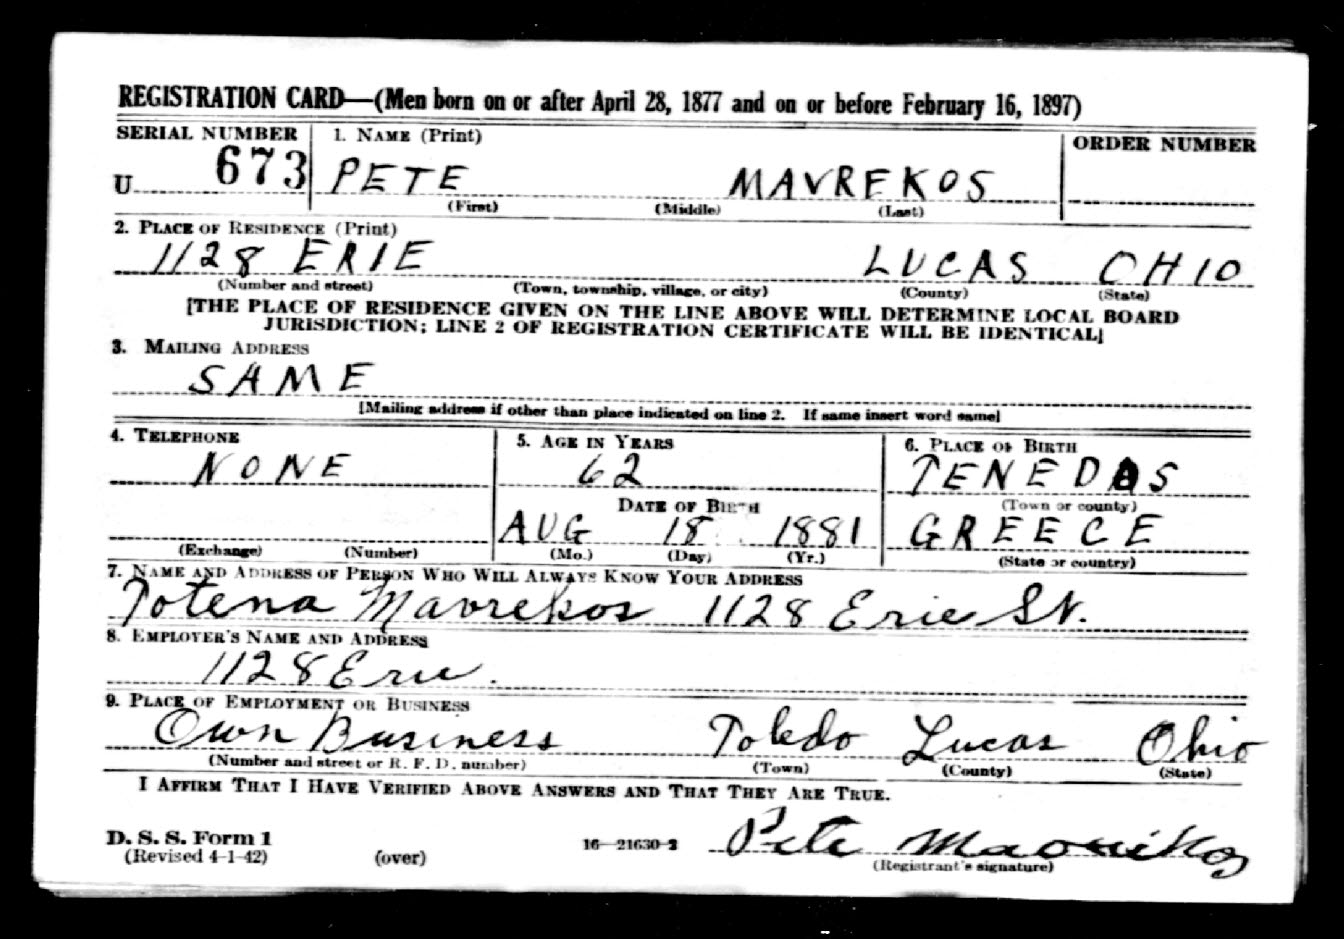 REGISTRATION CARD—(Men born on or after April 28, 1877 and on or before February 16, 1897)
SERIAL NUMBER 1. NAME (Print) ORDER NUMBER
U 673 PETE MAVREKOS
(First) (Middle) (Last)
2. PLACE OF RESIDENCE (Print)
1128 ERIE LUCAS OHIO
(Number and street) (Town, township, village, or city) (County) (State)
[THE PLACE OF RESIDENCE GIVEN ON THE LINE ABOVE WILL DETERMINE LOCAL BOARD
JURISDICTION; LINE 2 OF REGISTRATION CERTIFICATE WILL BE IDENTICAL]
3. MAILING ADDRESS
SAME
[Mailing address if other than place indicated on line 2. If same insert word same]
4. TELEPHONE 5. AGE IN YEARS 6. PLACE OF BIRTH
NONE 62 TENEDOS
DATE OF BIRTH (Town or county)
AUG 18 1881 GREECE
(Exchange) (Number) (Mo.) (Day) (Yr.) (State or country)
7. NAME AND ADDRESS OF PERSON WHO WILL ALWAYS KNOW YOUR ADDRESS
Totena Mavrekos 1128 Erie St.
8. EMPLOYER'S NAME AND ADDRESS
1128 Erie.
9. PLACE OF EMPLOYMENT OR BUSINESS
Own Business Toledo Lucas Ohio
(Number and street or R. F. D. number) (Town) (County) (State)
I AFFIRM THAT I HAVE VERIFIED ABOVE ANSWERS AND THAT THEY ARE TRUE.
D. S. S. Form 1
(Revised 4-1-42) (over) 16—21630-2 Pete
(Registrant's signature)